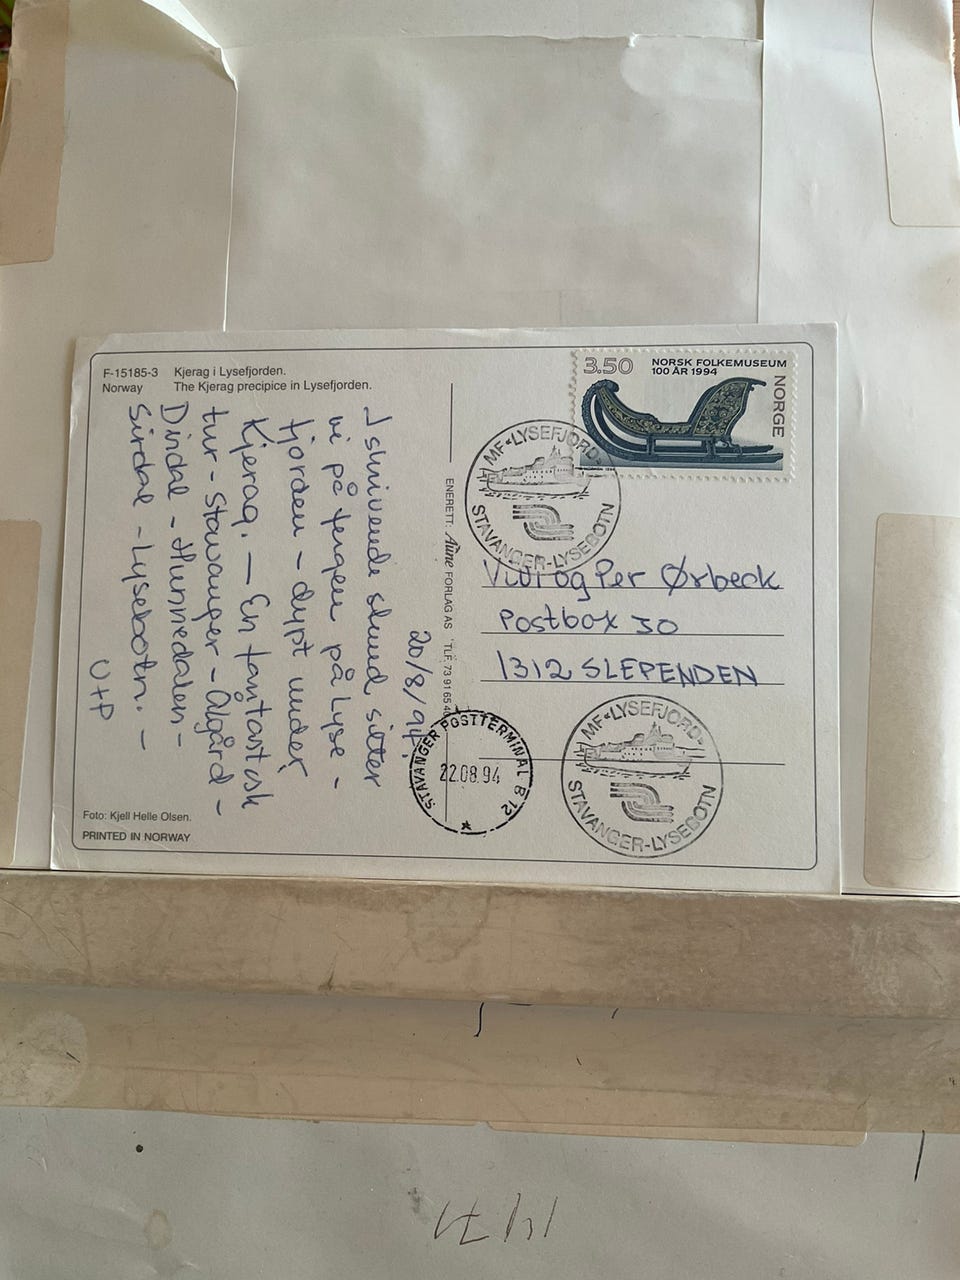 F-15185-3 Kjerag i Lysefjorden.
Norway The Kjerag precipice in Lysefjorden.
20/8/94.
I skrivende stund sitter
vi på fergen på Lyse-
fjorden - dypt under
Kjerag. - En fantastisk
tur - Stavanger - Ålgård -
Dirdal - Hunnedalen -
Sirdal - Lysebotn. -
U+P
Foto: Kjell Helle Olsen.
PRINTED IN NORWAY
ENERETT: Aune FORLAG AS TLF. 73 91 65 4
3.50 NORSK FOLKEMUSEUM
100 ÅR 1994
NORGE
MF «LYSEFJORD»
STAVANGER-LYSEBOTN
og Per Ørbeck
Postbox 30
1312 SLEPENDEN
STAVANGER POSTTERMINAL B 12
22.08.94
MF «LYSEFJORD»
STAVANGER-LYSEBOTN